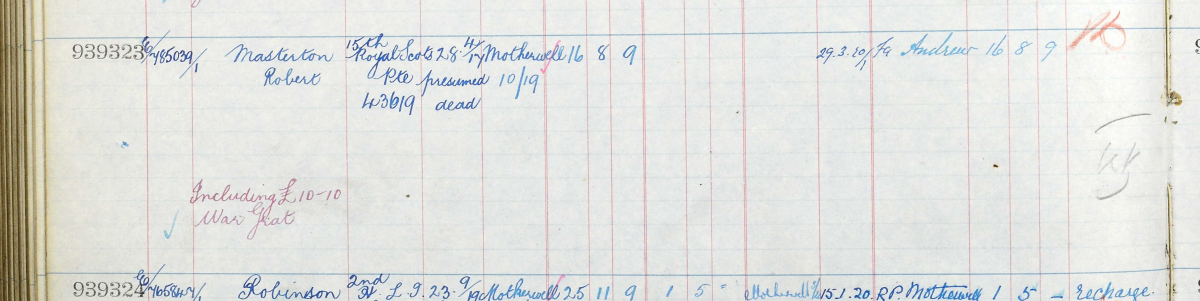 939323 E/485039/1 Masterton 15th Royal Scots 28 4/17 Motherwell 16 8 9 29.3.20 Andrew 16 8 9
Robert Pte presumed 10/19
43619 dead
Including £10-10
War Grat
939324 Robinson 2nd H. L. I. 23. 9/19 Motherwell 25 11 9 1 5 " Motherwell 15.1.20. R.P. Motherwell 1 5 - recharge.